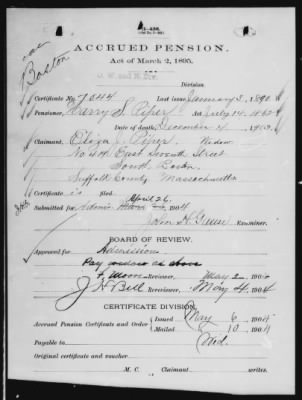 ACCRUED PENSION.
Act of March 2, 1895.
Boston
O. W. and N. Div.
Division
Certificate No. 7044 Last issue January 3, 1890
Pensioner, Harry S. Piper
Date of death, December 4, 1903
Claimant, Eliza J. Piper, Widow
No 414 East Seventh Street
South Boston
Suffolk County, Massachusetts
Certificate is filed
April 26
Submitted for Admis. 1904
John H. Green Examiner.
BOARD OF REVIEW.
Approved for Admission
Pay as above
Moore Reviewer, May 2 1904
J H Bell Rereviewer, May 4 04
CERTIFICATE DIVISION.
Accrued Pension Certificate and Order
Issued May 6 1904
Mailed " 10 1904
Payable to Wid.
Original certificate and voucher
M. C. Claimant writes.